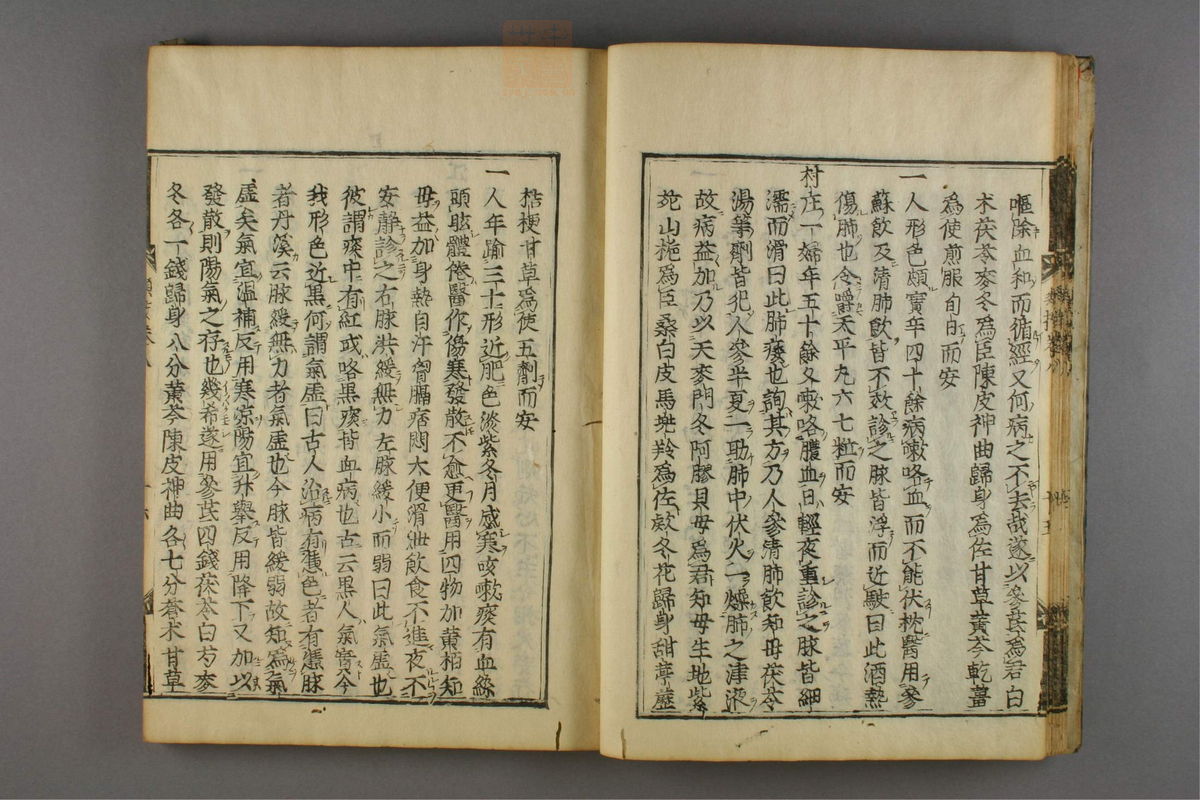 嘔除血和而循經又何病之不去哉遂以參芪爲君白
术茯苓麥冬爲臣陳皮神曲歸身爲佐甘草黃芩乾薑
爲使煎服旬日而安
一人形色頗實年四十餘病嗽咯血而不能伏枕醫用參
蘇飲及清肺飲皆不效診之脉皆浮而近駛曰此酒熱
傷肺也令嚼太平丸六七粒而安
村庄一婦年五十餘久嗽咯膿血日輕夜重診之脉皆細
濡而滑曰此肺痿也詢其方乃人參清肺飲知母茯苓
湯等劑皆犯人參半夏一助肺中伏火一燥肺之津液
故病益加乃以天麥門冬阿膠貝母爲君知母生地紫
菀山梔爲臣桑白皮馬兠羚爲佐欵冬花歸身甜葶藶
桔梗甘草爲使五劑而安
一人年踰三十形近肥色淡紫冬月感寒咳嗽痰有血絲
頭眩體倦醫作傷寒發散不愈更醫用四物加黃栢知
母益加身熱自汗胷膈痞悶大便滑泄飲食不進夜不
安靜診之右脉洪緩無力左脉緩小而弱曰此氣虛也
彼謂痰中有紅或咯黑痰皆血病也古云黑人氣實今
我形色近黑何謂氣虛曰古人治病有凴色者有凴脉
者丹溪云脉緩無力者氣虛也今脉皆緩弱故知爲氣
虛矣氣宜温補反用寒凉陽宜升舉反用降下又加以
發散則陽氣之存也幾希遂用參芪四錢茯苓白芍麥
冬各一錢歸身八分黃芩陳皮神曲各七分蒼术甘草